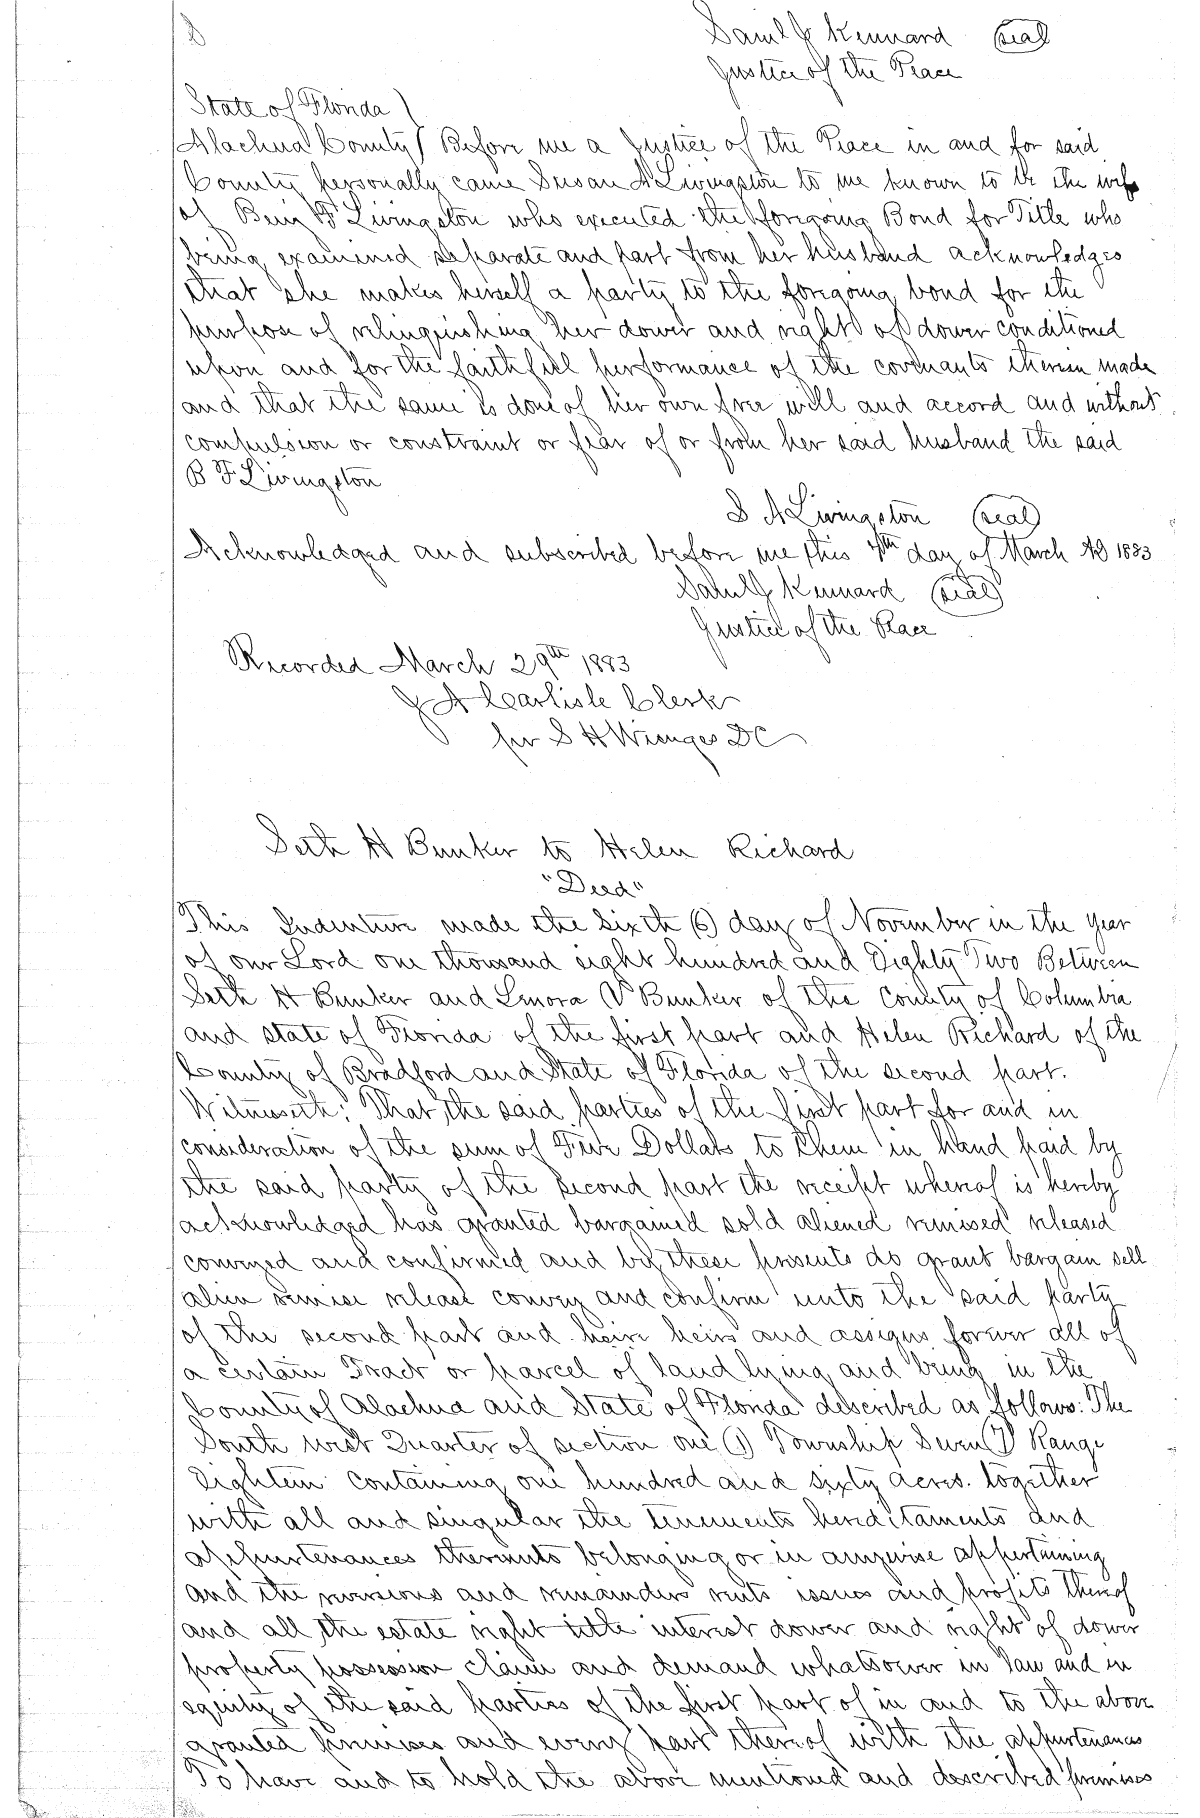 Saml J Kennard seal
Justice of the Peace
State of Florida )
Alachua County ) Before me a Justice of the Peace in and for said
County personally came Susan A Livingston to me known to be the wife
of Benj F Livingston who executed the foregoing Bond for Title who
being examined separate and part from her husband acknowledges
that she makes herself a party to the foregoing bond for the
purpose of relinquishing her dower and right of dower conditioned
upon and for the faithfull performance of the covenants therein made
and that the same is done of her own free will and accord and without
compulsion or constraint or fear of or from her said husband the said
B F Livingston
S A Livingston seal
Acknowledged and subscribed before me this 7th day of March AD 1883
Saml J Kennard seal
Justice of the Peace
Recorded March 29th 1883
J A Carlisle Clerk
per S H Wienges DC
Seth H Bunker to Helen Richard
"Deed"
This Indenture made the Sixth (6) day of November in the year
of our Lord one thousand eight hundred and Eighty Two Between
Seth H Bunker and Lenora V Bunker of the County of Columbia
and state of Florida of the first part and Helen Richard of the
County of Bradford and State of Florida of the second part.
Witnesseth: That the said parties of the first part for and in
consideration of the sum of Five Dollars to them in hand paid by
the said party of the second part the receipt whereof is hereby
acknowledged has granted bargained sold aliened remised released
conveyed and confirmed and by these presents do grant bargain sell
alien remise release convey and confirm unto the said party
of the second part and heirs and assigns forever all of
a certain Tract or parcel of land lying and being in the
County of Alachua and State of Florida described as follows: The
South west Quarter of section one (1) Township Seven (7) Range
Eighteen containing one hundred and sixty acres. together
with all and singular the tenements hereditaments and
appurtenances thereunto belonging or in anywise appertaining
and the reversions and remainders rents issues and profits thereof
and all the estate right title interest dower and right of dower
property possession claim and demand whatsoever in law and in
equity of the said parties of the first part of in and to the above
granted premises and every part thereof with the appurtenances
To have and to hold the above mentioned and described premises